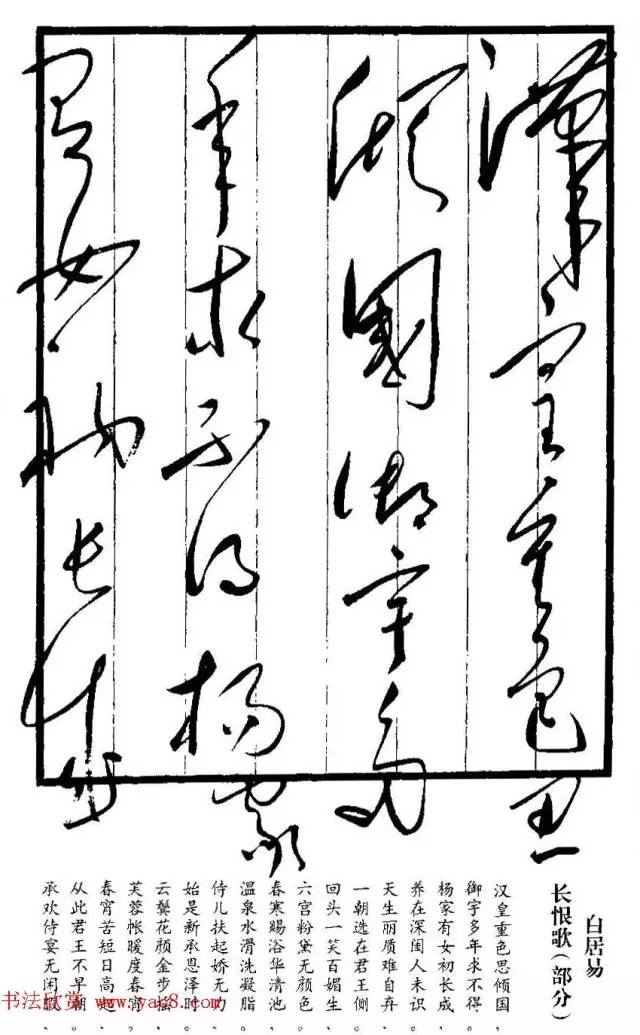 漢皇重色思
傾國御宇多
年求不得楊家
有女初長成
白居易
长恨歌(部分)
汉皇重色思倾国，
御宇多年求不得。
杨家有女初长成，
养在深闺人未识。
天生丽质难自弃，
一朝选在君王侧。
回头一笑百媚生，
六宫粉黛无颜色。
春寒赐浴华清池，
温泉水滑洗凝脂。
侍儿扶起娇无力，
始是新承恩泽时。
云鬓花颜金步摇，
芙蓉帐暖度春宵。
春宵苦短日高起，
从此君王不早朝。
承欢侍宴无闲暇，
书法欣赏 www.yac8.com